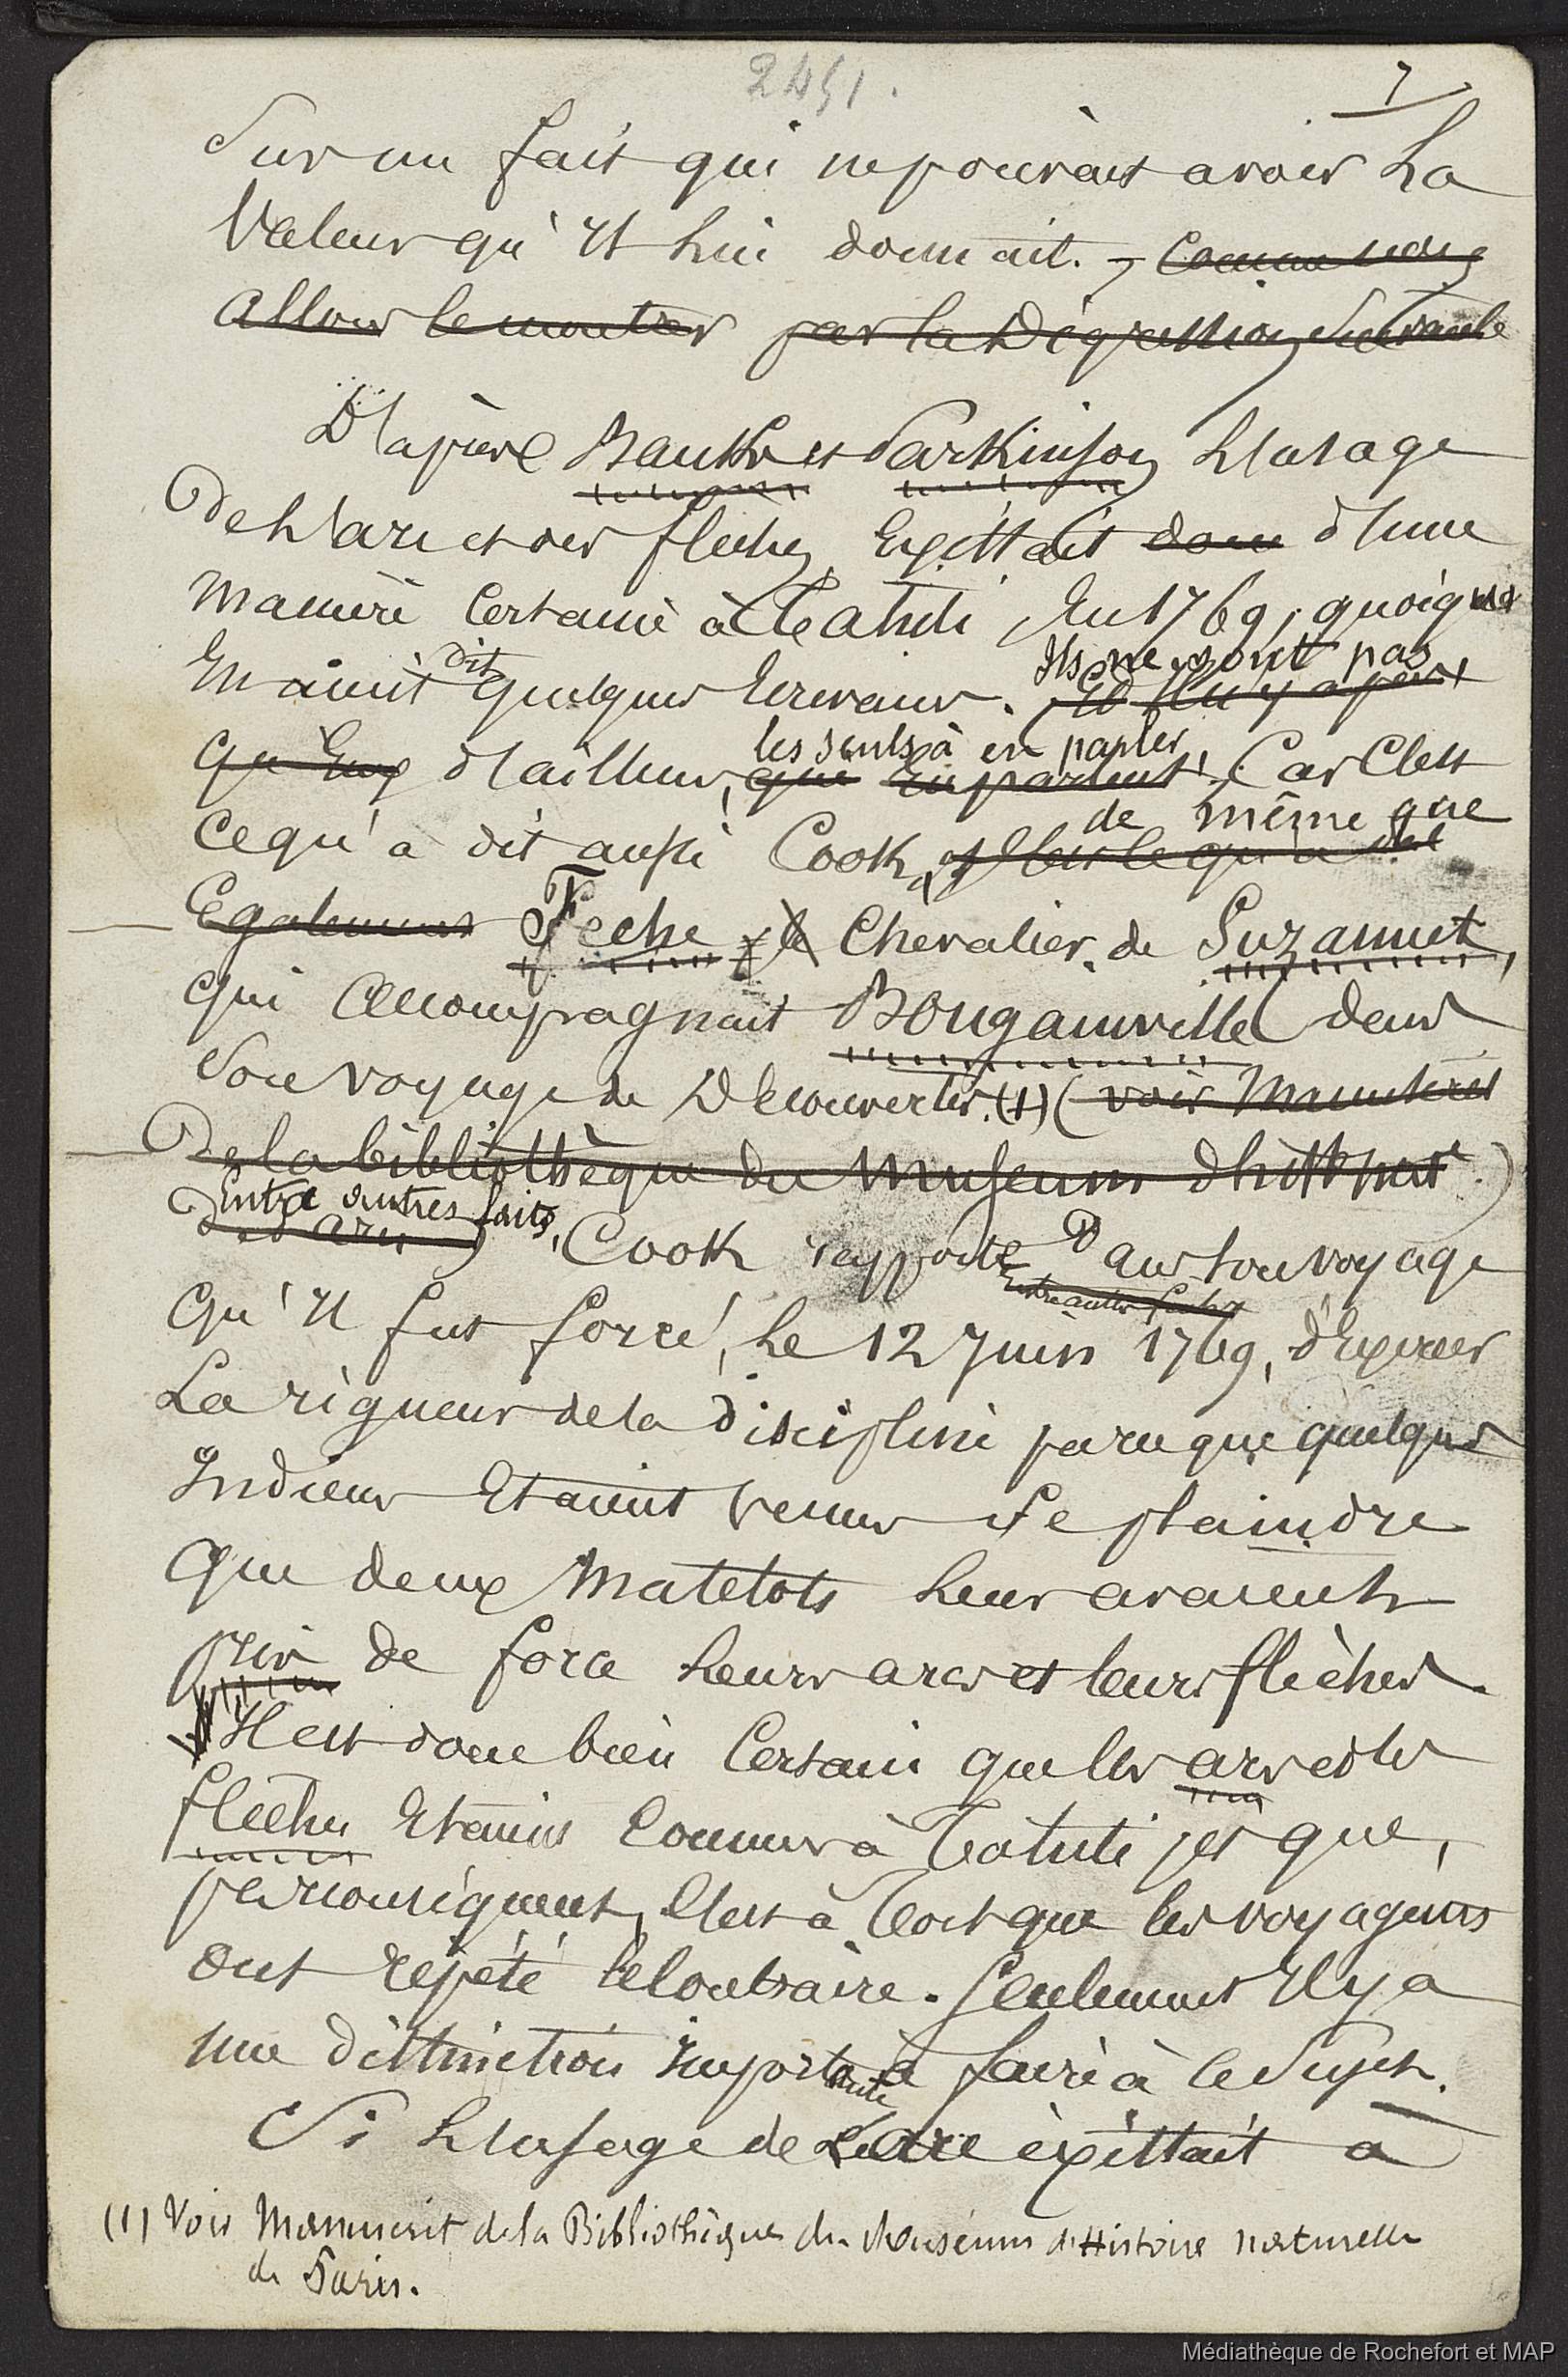 2451.
7
Sur un fait qui ne pouvait avoir La
Valeur qu'Il Lui donnait. - Comme nous
allons le montrer par la Digression Suivante
D'après Banks et Parkinson L'usage
De L'arc et des flèches Existait donc d'une
manière Certaine à Tahiti En 1769, quoique
En aient dit quelques Ecrivains. Ils ne sont pas
qu'Eux d'ailleurs, les seuls à en parler, Car C'est
ce qu'a dit aussi Cook, de même que
Egalement Feche & le Chevalier de Suzannet,
qui accompagnait Bougainville dans
Son voyage de Découvertes. (1) (voir Manuscrits
De la bibliothèque du Museum d'hist. nat.)
Entre autres faits, Cook rapporte Dans son voyage
Entre autres faits
Qu'Il fut forcé, Le 12 Juin 1769, d'Exercer
La rigueur de la discipline parce que quelques
Indiens Etaient venus se plaindre
Que deux Matelots Leur avaient
pris de force Leurs arcs et leurs flèches.
Il est donc bien Certain que les arcs et les
flèches Etaient Connus à Tahiti, et que,
par conséquent, C'est à Tort que les voyageurs
ont répété le Contraire. Seulement Il y a
une distinction Importante à faire à ce Sujet.
Si L'usage de L'arc éxistait à
(1) Voir Manuscrit de la Bibliothèque du Muséum d'Histoire naturelle
de Paris.
Médiathèque de Rochefort et MAP